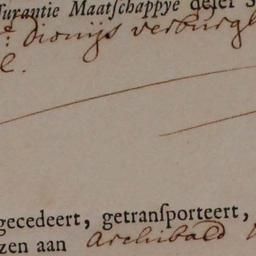 ſurantie Maatſchappye deſer S
: Dionijs verburgh
l.
gecedeert, getranſporteert,
zen aan Archibald